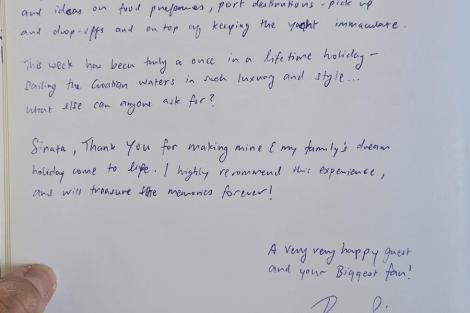 and ideas on food preferences, port destinations - pick up
and drop-offs and on top of keeping the yacht immaculate.
This week has been truly a once in a lifetime holiday -
sailing the Croatian waters in such luxury and style...
what else can anyone ask for?
Sinata, Thank You for making mine & my family's dream
holiday come to life. I highly recommend this experience,
and will treasure the memories forever!
A very very happy guest
and your Biggest fan!